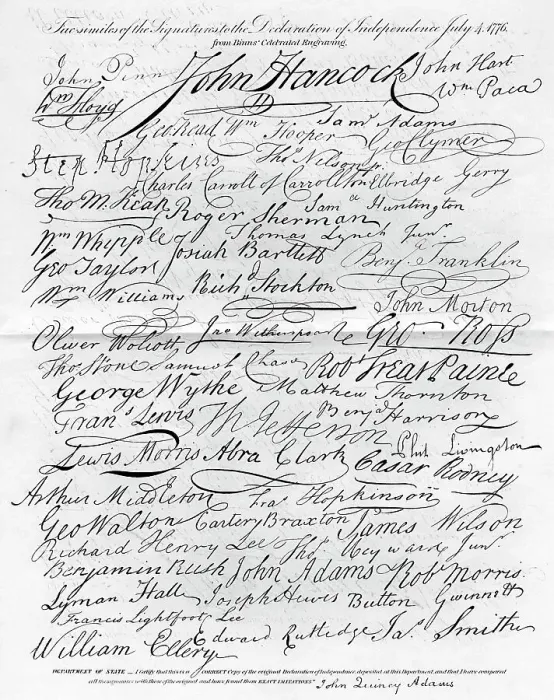 Facsimiles of the Signatures to the Declaration of Independence July 4. 1776.
from Binns' Celebrated Engraving.
John Penn John Hancock John Hart
Wm Floyd Wm Paca
Geo Read Wm Hooper Saml Adams Geo Clymer
Step Hopkins Thos Nelson jr.
Charles Carroll of Carrollton Elbridge Gerry
Tho M:Kean Roger Sherman Saml Huntington
Wm Whipple Josiah Bartlett Thomas Lynch Junr. Benj. Franklin
Geo Taylor
Wm Williams Richd Stockton John Morton
Oliver Wolcott Jno Witherspoon Geo. Ross
Thos Stone Samuel Chase Robt Treat Paine
George Wythe Matthew Thornton
Frans Lewis Th Jefferson Benja Harrison
Lewis Morris Abra Clark Phil Livingston
Cæsar Rodney
Arthur Middleton Fras Hopkinson
Geo Walton Carter Braxton James Wilson
Richard Henry Lee Thos Heyward Junr.
Benjamin Rush John Adams Robt Morris
Lyman Hall Joseph Hewes Button Gwinnett
Francis Lightfoot Lee
William Ellery Edward Rutledge Jas. Smith
DEPARTMENT OF STATE — I certify that this is a CORRECT Copy of the original Declaration of Independence deposited at this Department, and that I have compared
all the signatures with those of the original and have found them EXACT IMITATIONS John Quincy Adams